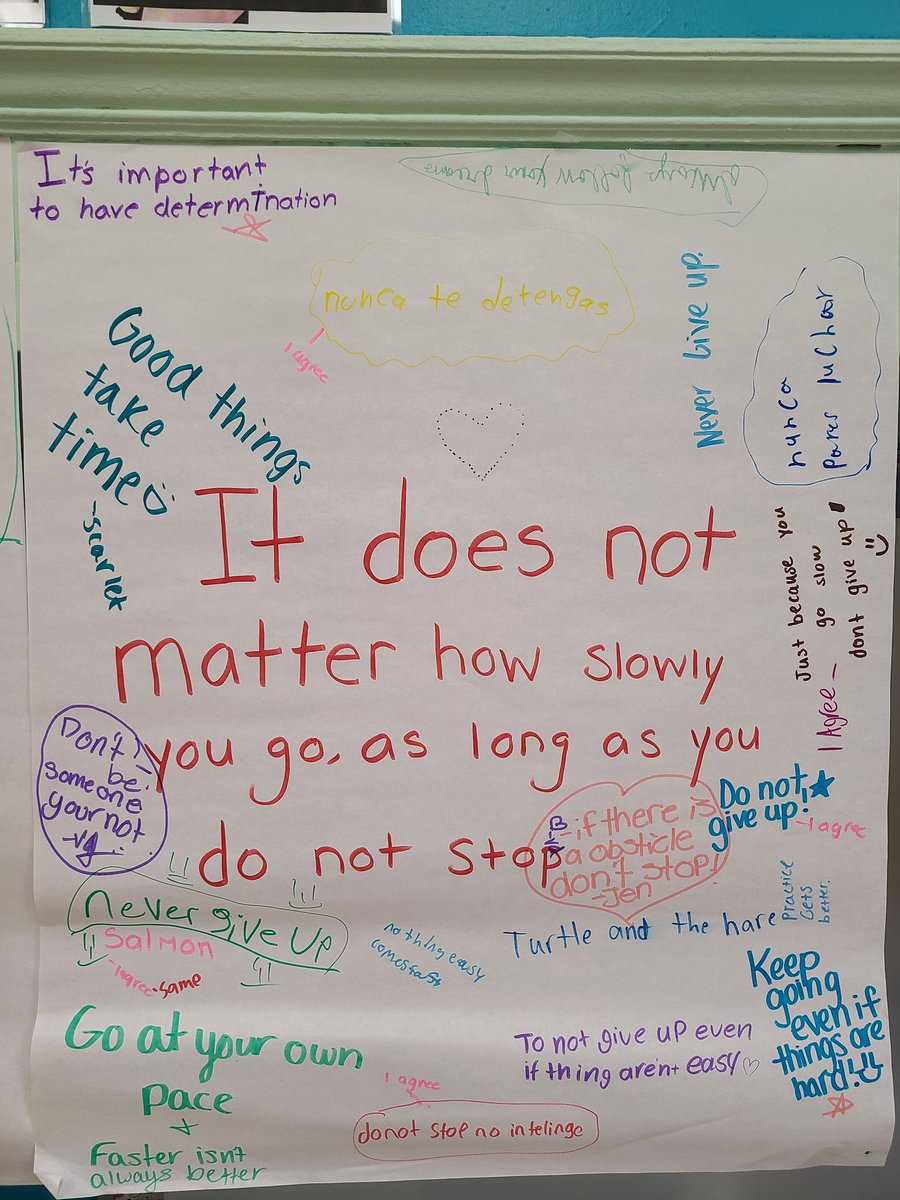 It's important
to have determination
Always follow your dreams
nunca te detengas
I agree
Never Give up.
nunca
pares luchar
Good things
take
time
-scarlet
It does not
matter how slowly
you go, as long as you
do not stop
Just because you
go slow
dont give up
I Agree -
Don't
be
someone
your not
-vg
B
-if there is
a obsticle
don't stop!
-Jen
Do not
give up!
-I agree
never give up
Salmon
-I agree
-same
nothing easy
comes fast
Turtle and the hare
Practice
Gets
better.
Keep
going
even if
things are
hard!
Go at your own
pace
+
Faster isn't
always better
To not give up even
if thing aren't easy
I agree
do not stop no intelinge